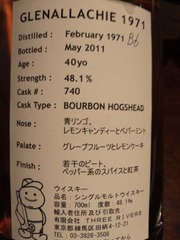 GLENALLACHIE 1971
Distilled : February 1971
B6
Bottled : May 2011
Age : 40yo
Strength : 48.1%
Cask # : 740
Cask Type : BOURBON HOGSHEAD
Nose : 青リンゴ、
レモンキャンディーとペパーミント
Palate : グレープフルーツとレモンケーキ
Finish : 若干のピート、
ペッパー系のスパイスと紅茶
ウイスキー
品名：シングルモルトウイスキー
容量：700ml 度数：48.1%
輸入者住所及び引取先：
有限会社 THREE RIVERS
東京都練馬区田柄4-12-21
TEL: 03-3926-3508